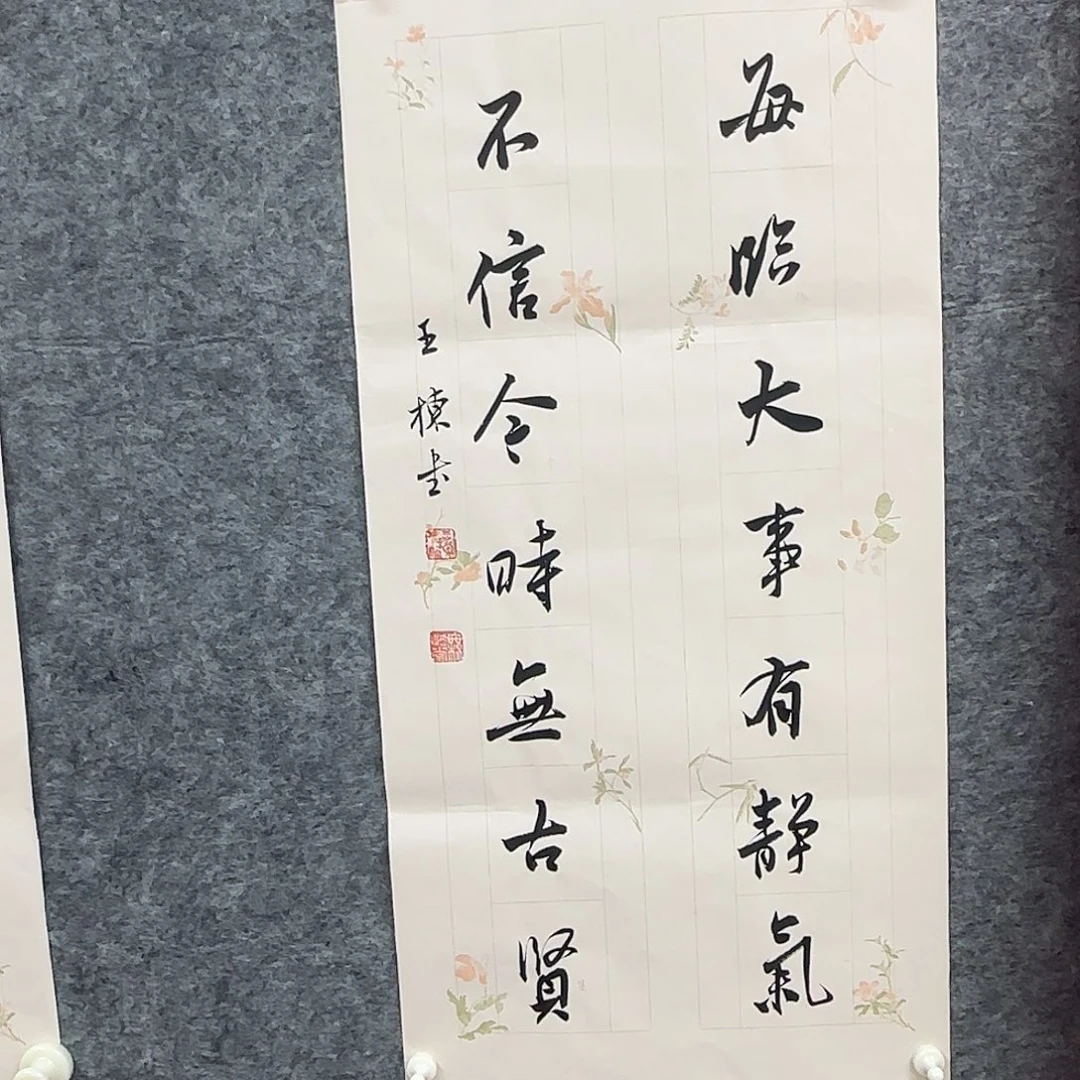 每臨大事有靜氣
不信令時無古賢
王楨书